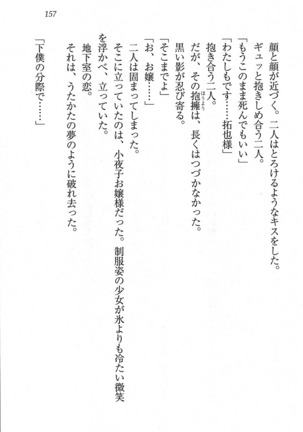 157
顔と顔が近づく。二人はとろけるようなキスをした。
ギュッと抱きしめ合う二人。
「もうこのまま死んでもいい」
「わたしもです……拓也様」
抱き合う二人。
だが、その抱擁は、長くはつづかなかった。
黒い影が忍び寄る。
「そこまでよ」
「お、お嬢……」
二人は固まってしまった。
そこに立っていたのは、小夜子お嬢様だった。制服姿の少女が氷よりも冷たい微笑
を浮かべ、立っていた。
地下室の恋。
それは、うたかたの夢のように破れ去った。
「下僕の分際で……」